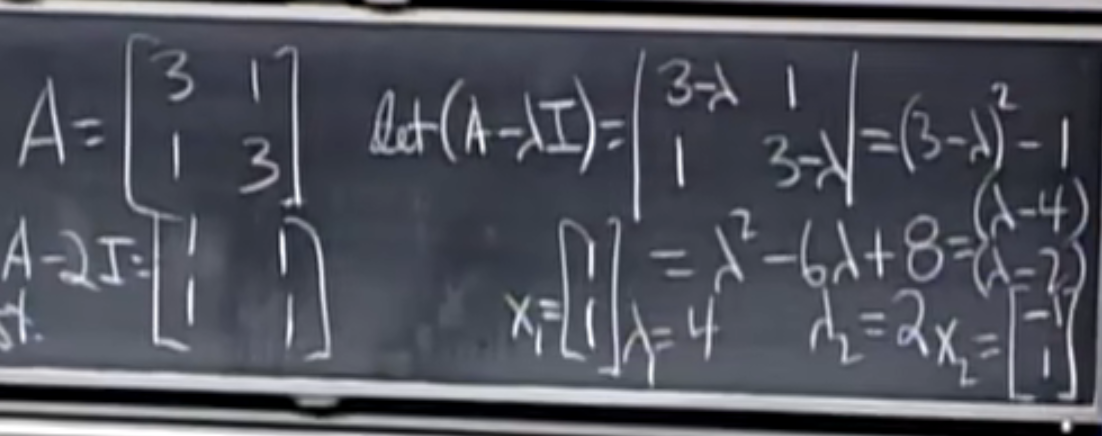 A = [3 1; 1 3] det(A - λI) = |3-λ 1; 1 3-λ| = (3-λ)² - 1
A - 2I = [1 1; 1 1] = λ² - 6λ + 8 = (λ-4)(λ-2)
x₁ = [1; 1] λ₁ = 4 λ₂ = 2 x₂ = [-1; 1]